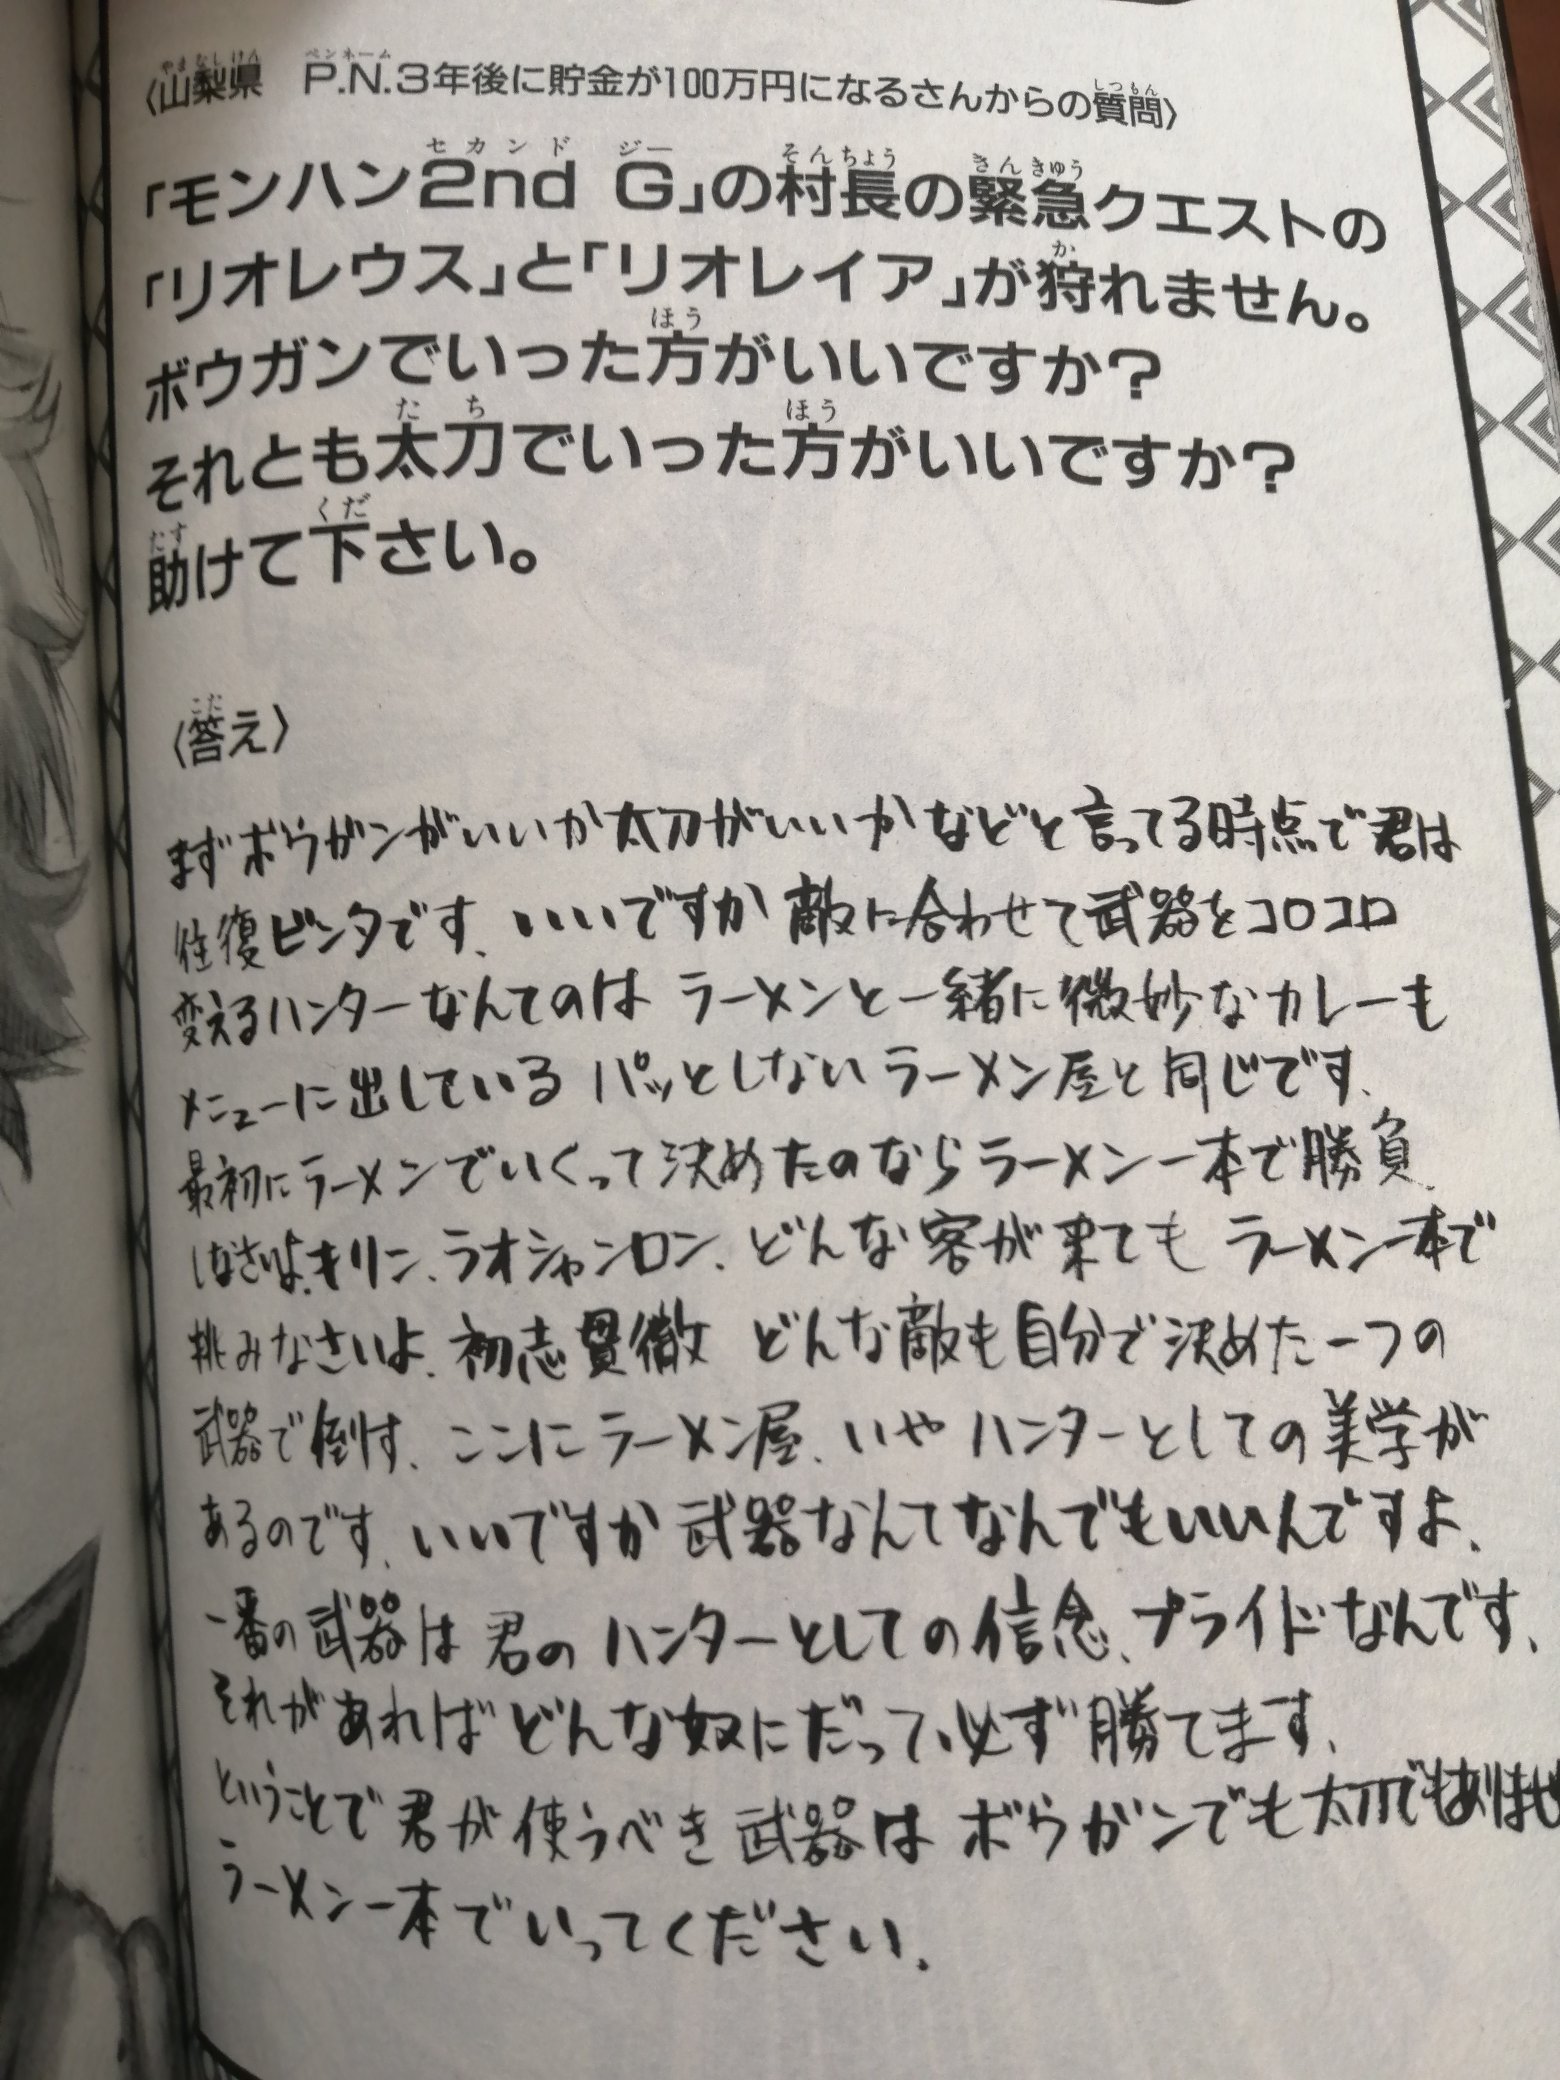 〈山梨県　P.N.3年後に貯金が100万円になるさんからの質問〉
「モンハン2nd G」の村長の緊急クエストの
「リオレウス」と「リオレイア」が狩れません。
ボウガンでいった方がいいですか？
それとも太刀でいった方がいいですか？
助けて下さい。
〈答え〉
まずボウガンがいいか太刀がいいかなどと言ってる時点で君は
往復ビンタです、いいですか敵に合わせて武器をコロコロ
変えるハンターなんてのは ラーメンと一緒に微妙なカレーも
メニューに出している パッとしないラーメン屋と同じです、
最初にラーメンでいくって決めたのならラーメン一本で勝負
しなさいよ、キリン、ラオシャンロン、どんな客が来ても ラーメン一本で
挑みなさいよ、初志貫徹 どんな敵も自分で決めた一つの
武器で倒す、ここにラーメン屋、いや ハンターとしての美学が
あるのです、いいですか 武器なんてなんでもいいんですよ、
一番の武器は君の ハンターとしての信念、プライドなんです、
それがあれば どんな奴にだって、必ず勝てます、
ということで君が使うべき武器は ボウガンでも太刀でもありませ
ラーメン一本でいってください、